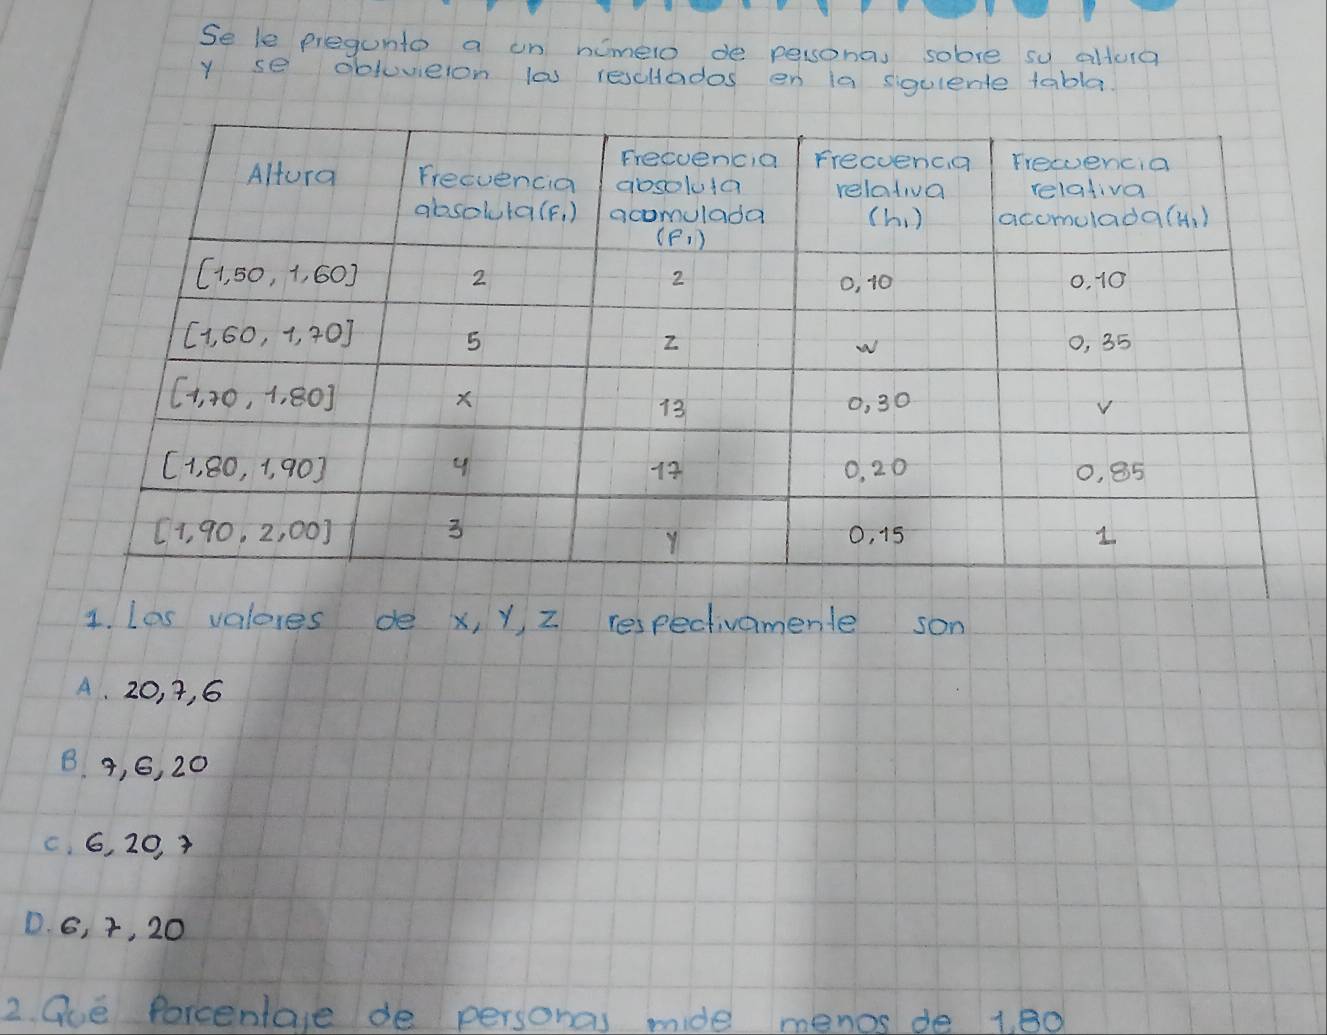 Se le pregunto a un número de personas sobre su altura
y se obtuvieron los resultados en la siguiente tabla.
Altura Frecuencia absoluta (F₁) Frecuencia absoluta acomulada (F₁) Frecuencia relativa (h₁) Frecuencia relativa acomulada (H₁)
[1,50, 1,60] 2 2 0,10 0.10
[1,60, 1,70] 5 Z W 0,35
[1,70, 1,80] X 13 0,30 V
[1,80, 1,90] 4 17 0,20 0,85
[1,90, 2,00] 3 Y 0,15 1
1. Los valores de X, Y, Z respectivamente son
A. 20,7,6
B. 7,6,20
C. 6,20,7
D. 6,7,20
2. Qué Porcentaje de personas mide menos de 1,80